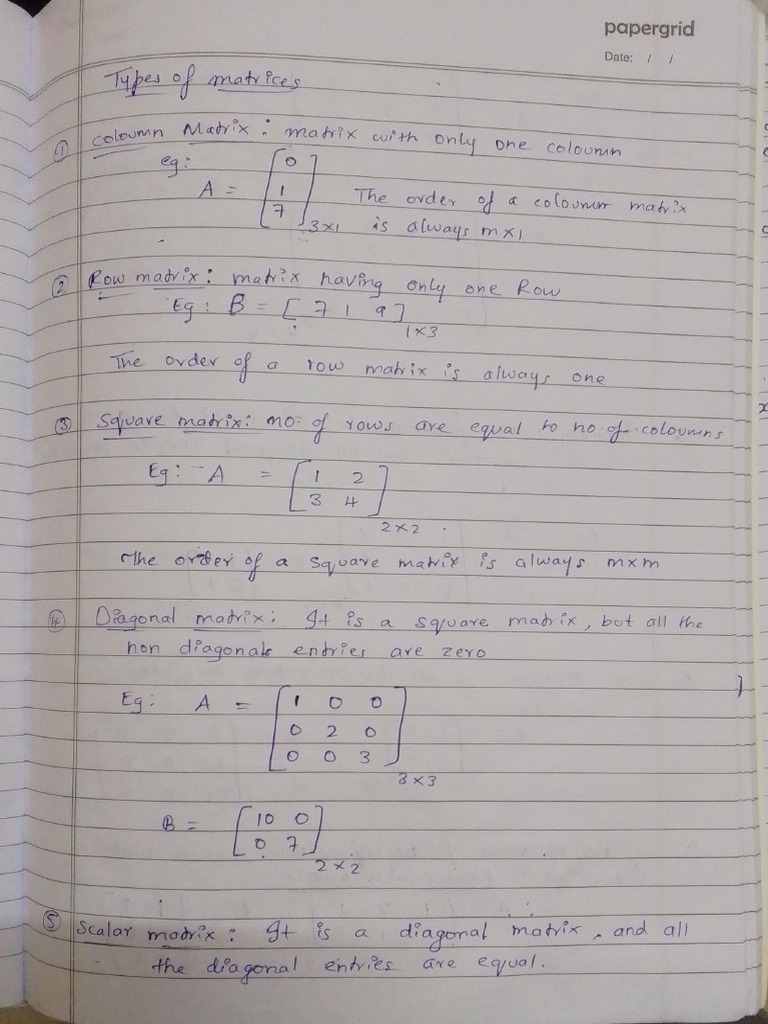 papergrid
Date: / /
Types of matrices
① Coloumn Matrix : matrix with only one coloumn
eg:
A = [0 1 7] 3×1 The order of a coloumn matrix
is always m×1
② Row matrix : matrix having only one Row
Eg : B = [ 7 1 9 ] 1×3
The order of a row matrix is always one
③ Square matrix : no. of rows are equal to no of coloumns
Eg : - A = [1 2
3 4] 2×2
The order of a square matrix is always m×m
④ Diagonal matrix : It is a square matrix, but all the
non diagonals entries are zero
Eg : A = [1 0 0
0 2 0
0 0 3] 3×3
B = [10 0
0 7] 2×2
⑤ Scalar matrix : It is a diagonal matrix, and all
the diagonal entries are equal.